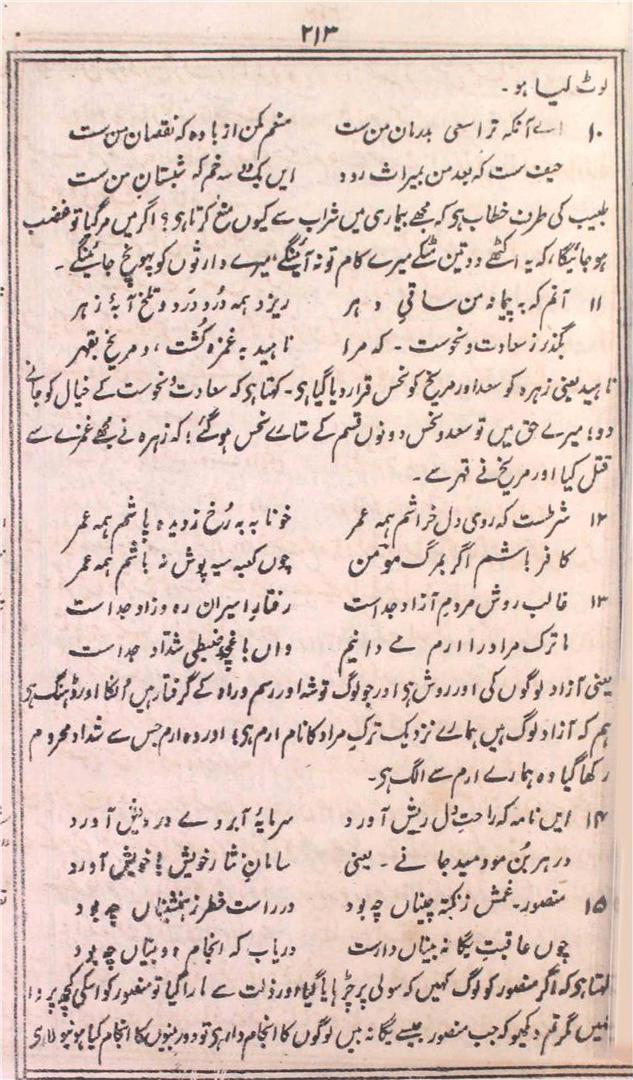 ۲۱۳
لوٹ لیا ہو۔
۱۰ اے آنکہ ترا سعی بدرمان من ست منعم مکن از بادہ کہ نقصان من ست
حیف ست کہ بعد من بمیراث رود ایں یک دو سہ خم کہ شبستان من ست
طبیب کی طرف خطاب ہی کہ مجھے بیماری میں شراب سے کیوں منع کرتا ہی؟ اگر میں مر گیا تو غضب
ہو جائیگا، کہ یہ اکٹھے دو تین مٹکے میرے کام تو نہ آئینگے، میرے وارثوں کو پہونچ جائینگے۔
۱۱ آنم کہ بہ پیمانہ من ساقی دہر ریزد ہمہ درد درد و تلخ آبہ زہر
بگذر ز سعادت و نحوست۔ کہ مرا ناہید بہ غمزہ کُشت، و مریخ بقہر
ناہید یعنی زہرہ کو سعد اور مریخ کو نحس قرار دیا گیا ہی۔ کہتا ہی کہ سعادت و نحوست کے خیال کو جانے
دو؛ میرے حق میں تو سعد و نحس دونوں قسم کے ستارے نحس ہو گئے؛ کہ زہرہ نے مجھے غمزے سے
قتل کیا اور مریخ نے قہر سے۔
۱۲ شرطست کہ روی دل خراشم ہمہ عمر خونابہ بہ رُخ ز دیدہ پاشم ہمہ عمر
کافر باشم اگر بمرگ مومن چوں کعبہ سیہ پوش نہ باشم ہمہ عمر
۱۳ غالب روش مردم آزاد جداست رفتار اسیران رہ و زاد جداست
ما ترک مراد را ارم مے دانیم واں باغچہ ضبطی شداد جداست
یعنی آزاد لوگوں کی اور روش ہی اور جو لوگ توشہ اور رسم و راہ کے گرفتار ہیں اُنکا اور ڈھنگ ہی
ہم کہ آزاد لوگ ہیں ہمارے نزدیک ترک مراد کا نام ارم ہی؛ اور وہ ارم جس سے شداد محروم
رکھا گیا وہ ہمارے ارم سے الگ ہی۔
۱۴ ایں نامہ کہ راحت دل ریش آورد سرمایۂ آبروے درویش آورد
در ہر بُن مو دمید جانے۔ یعنی سامان نثار خویش با خویش آورد
۱۵ منصور۔ غمش ز نکتہ چیناں چہ بود در راست خطر ز ہمنشیناں چہ بود
چوں عاقبت یگانہ بیناں دارست دریاب کہ انجام دو بیناں چہ بود
کہتا ہی کہ اگر منصور کو لوگ کہیں کہ سولی پر چڑہایا گیا اور ذلت سے مارا گیا تو منصور کو اسکی کچھ پروا
نہیں مگر تم دیکھو کہ جب منصور جیسے یگانہ بیں لوگوں کا انجام دار ہی تو دو بینوں کا انجام کیا ہونیوالا ہی